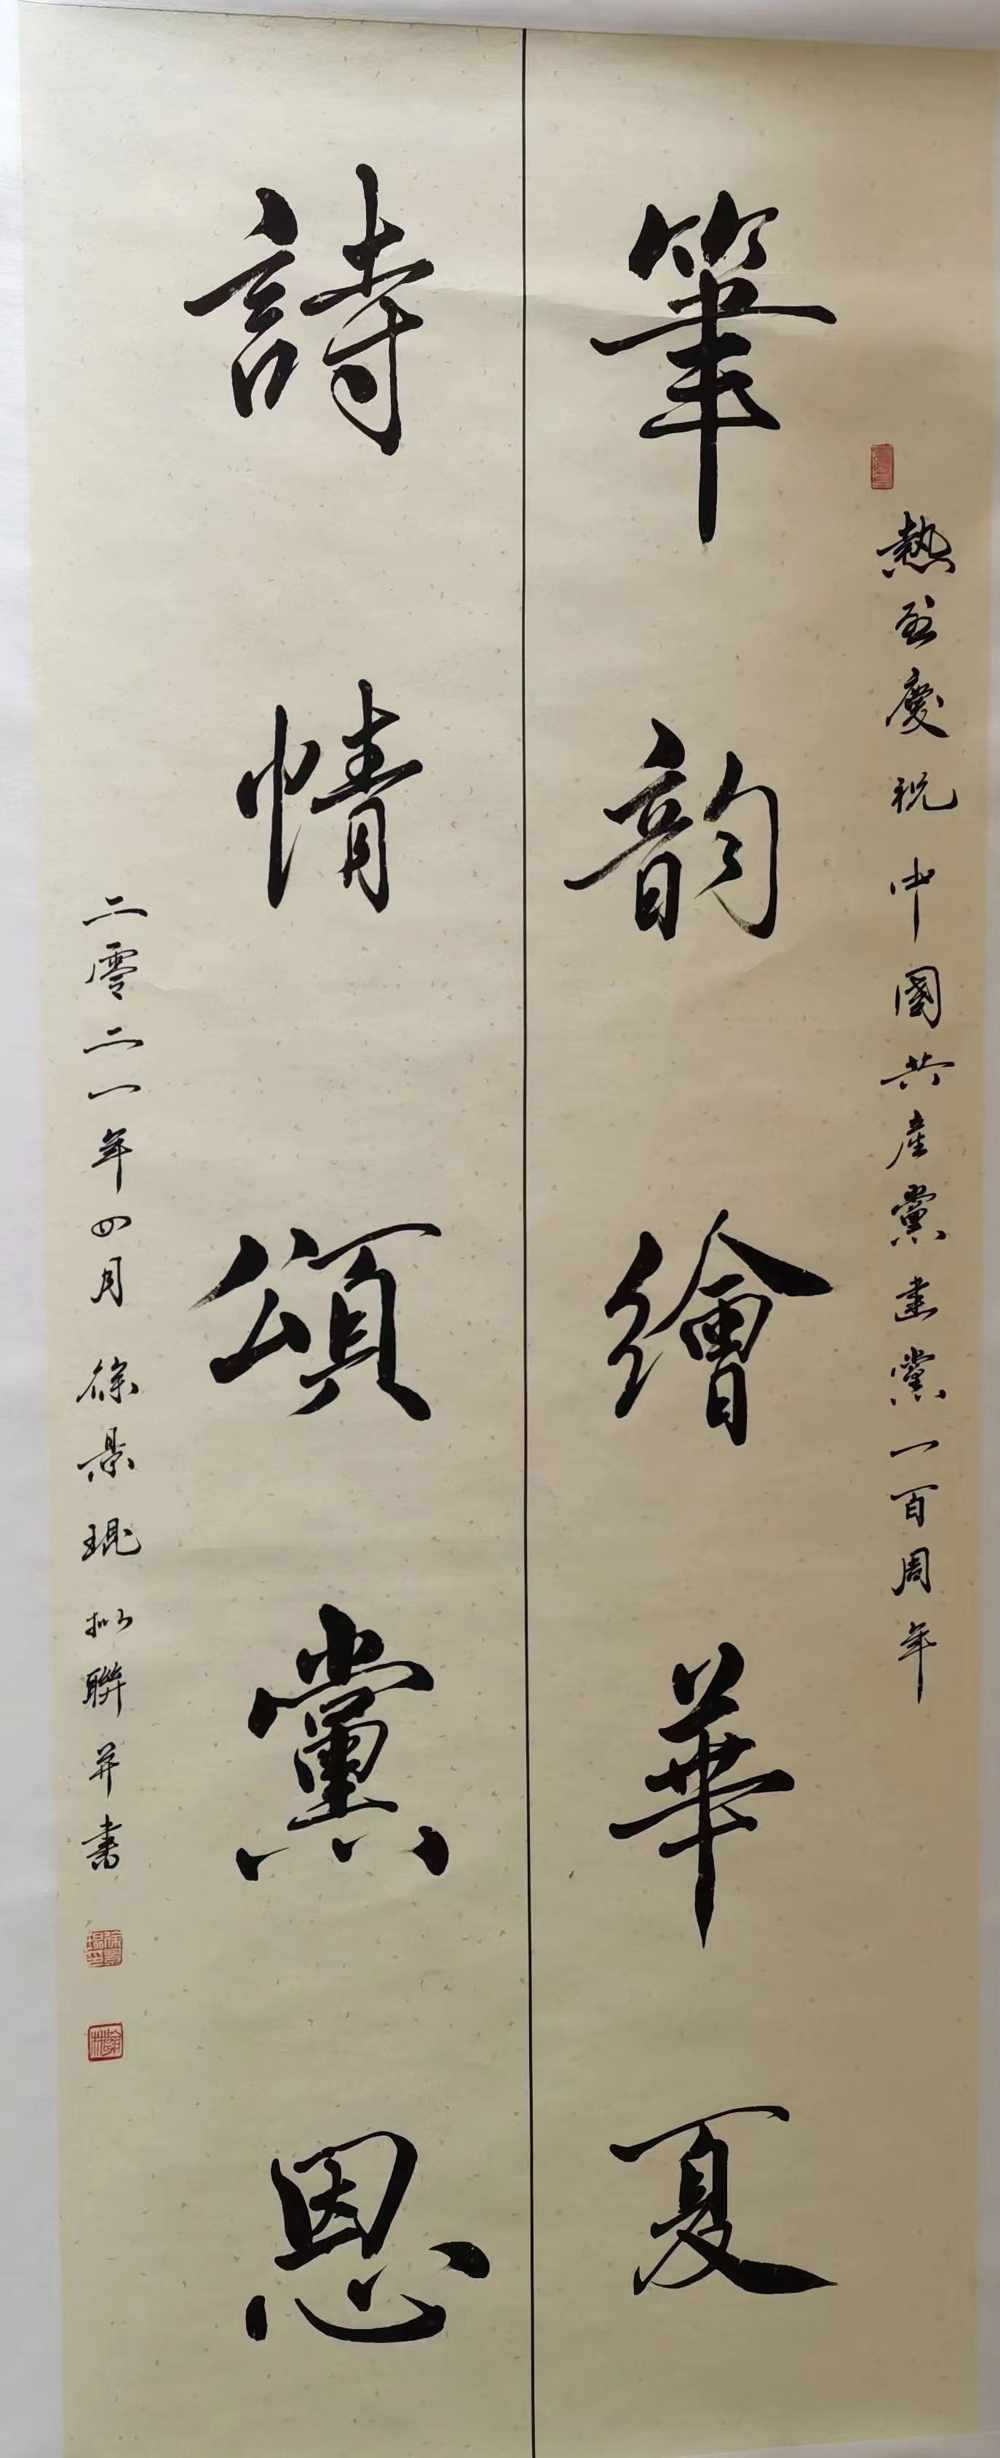 熱烈慶祝中國共產黨建黨一百周年
筆韵繪華夏
詩情頌黨恩
二零二一年四月徐景琨拟聯并書